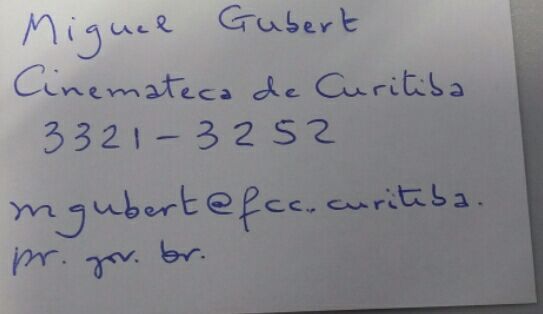 Miguel Gubert
Cinemateca de Curitiba
3321-3252
mgubert@fcc.curitiba.
pr. gov. br.